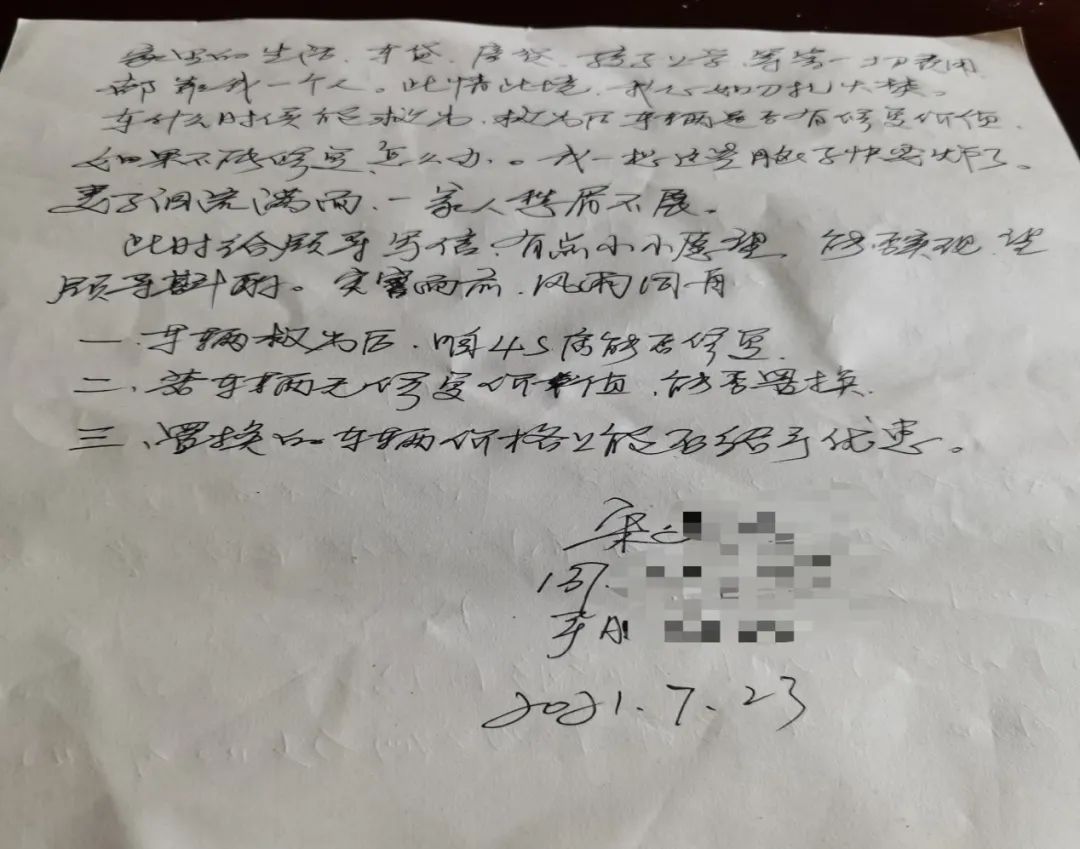 家里的生活、车贷、房贷、孩子上学、等等一切费用
都靠我一个人。此情此境、我心如刀扎火燎。
车什么时候能救出、救出后车辆是否有修复价值、
如果不能修复、怎么办。我一想这些脑子快要炸了。
妻子泪流满面、一家人愁眉不展。
此时给领导写信、有点小小愿望、能否实现、望
领导斟酌。灾害面前、风雨同舟
一、车辆救出后、咱4S店能否修复、
二、若车辆无修复价值、能否置换、
三、置换的车辆价格上能否给予优惠。
宋
豫A
2021.7.23